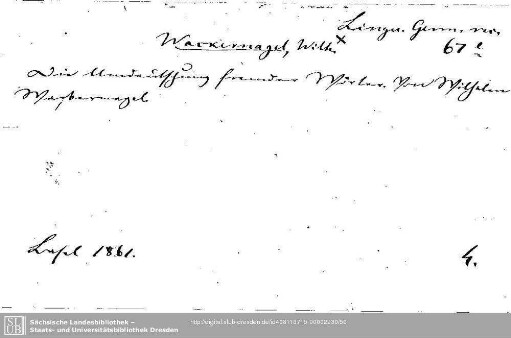 Lingu. Germ. rec.
Wackernagel, Wilh. x
67 l
Die Umdeutschung fremder Wörter. Von Wilhelm
Wackernagel
Basel 1861.
4.
SLUB
Sächsische Landesbibliothek –
Staats- und Universitätsbibliothek Dresden